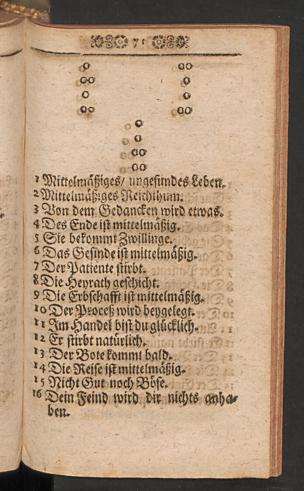 71
1 Mittelmäßiges/ ungesundes Leben.
2 Mittelmäßiges Reichthum.
3 Von dem Gedancken wird etwas.
4 Des Ende ist mittelmäßig.
5 Sie bekommt Zwillinge.
6 Das Gesinde ist mittelmäßig.
7 Der Patiente stirbt.
8 Die Heyrath geschicht.
9 Die Erbschafft ist mittelmäßig.
10 Der Proceß wird beygelegt.
11 Im Handel bist du glücklich.
12 Er stirbt natürlich.
13 Der Bote kommt bald.
14 Die Reise ist mittelmäßig.
15 Nicht Gut noch Böse.
16 Dein Feind wird dir nichts anha-
ben.